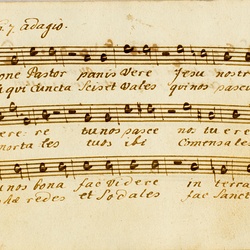 adagio.
one Pastor panis Vere Jesu nostr
qui Cuncta Scis et Vales qui nos pasci
ere: re tu nos pasce nos tuere
morta les tuos ibi Comensales
u nos bona fac Videre in terra
redes et Sodales fac Sanct